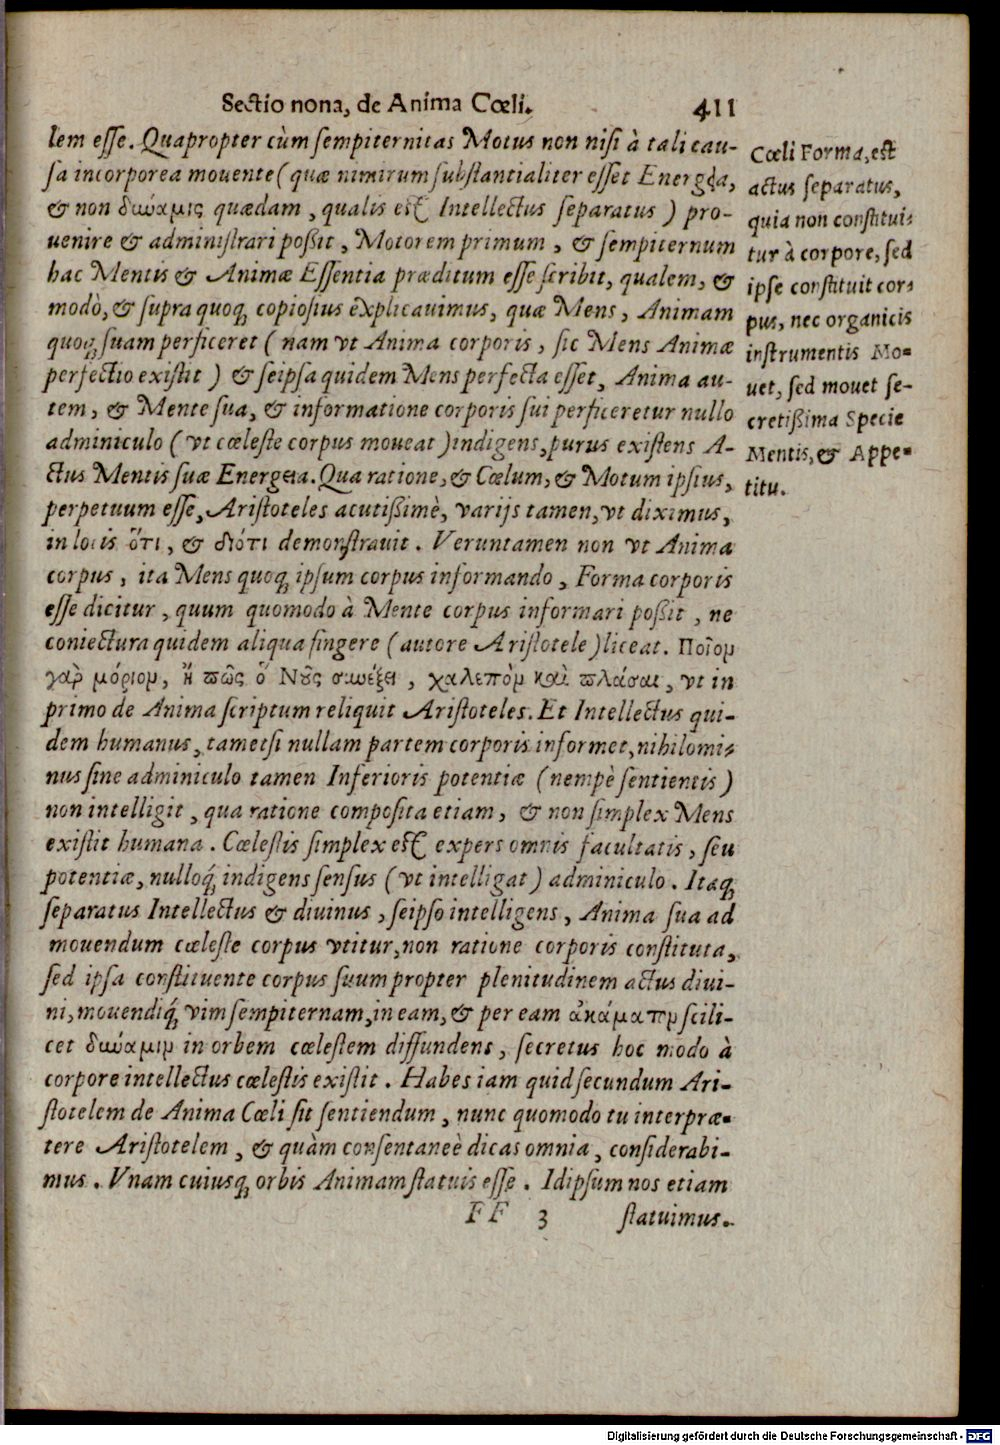 Sectio nona, de Anima Cœli. 411
lem esse. Quapropter cùm sempiternitas Motus non nisi à tali cau-
sa incorporea mouente (quæ nimirum substantialiter esset Energeia,
& non δύναμις quædam, qualis est Intellectus separatus) pro-
uenire & administrari poßit, Motorem primum, & sempiternum
hac Mentis & Animæ Essentia præditum esse scribit, qualem, &
modò, & supra quoq; copiosius explicauimus, quæ Mens, Animam
quoq; suam perficeret (nam vt Anima corporis, sic Mens Animæ
perfectio existit) & seipsa quidem Mens perfecta esset, Anima au-
tem, & Mente sua, & informatione corporis sui perficeretur nullo
adminiculo (vt cœleste corpus moueat) indigens, purus existens A-
ctus Mentis suæ Energeia. Qua ratione, & Cœlum, & Motum ipsius,
perpetuum esse, Aristoteles acutißimè, varijs tamen, vt diximus,
in locis ὅτι, & διότι demonstrauit. Veruntamen non vt Anima
corpus, ita Mens quoq; ipsum corpus informando, Forma corporis
esse dicitur, quum quomodo à Mente corpus informari poßit, ne
coniectura quidem aliqua fingere (autore Aristotele) liceat. Ποῖον
γὰρ μόριον, ἢ πῶς ὁ Νοῦς συνέξει, χαλεπὸν καὶ πλάσαι, vt in
primo de Anima scriptum reliquit Aristoteles. Et Intellectus qui-
dem humanus, tametsi nullam partem corporis informet, nihilomi-
nus sine adminiculo tamen Inferioris potentiæ (nempè sentientis)
non intelligit, qua ratione composita etiam, & non simplex Mens
existit humana. Cœlestis simplex est expers omnis facultatis, seu
potentiæ, nulloq́; indigens sensus (vt intelligat) adminiculo. Itaq;
separatus Intellectus & diuinus, seipso intelligens, Anima sua ad
mouendum cœleste corpus vtitur, non ratione corporis constituta,
sed ipsa constituente corpus suum propter plenitudinem actus diui-
ni, mouendiq́; vim sempiternam, in eam, & per eam ἀκάματον scili-
cet δύναμιν in orbem cœlestem diffundens, secretus hoc modo à
corpore intellectus cœlestis existit. Habes iam quid secundum Ari-
stotelem de Anima Cœli sit sentiendum, nunc quomodo tu interpræ-
tere Aristotelem, & quàm consentaneè dicas omnia, considerabi-
mus. Vnam cuiusq; orbis Animam statuis esse. Idipsum nos etiam
FF 3 statuimus.
Cœli Forma, est
actus separatus,
quia non constitui-
tur à corpore, sed
ipse constituit cor-
pus, nec organicis
instrumentis Mo-
uet, sed mouet se-
cretißima Specie
Mentis, & Appe-
titu.
Digitalisierung gefördert durch die Deutsche Forschungsgemeinschaft - DFG